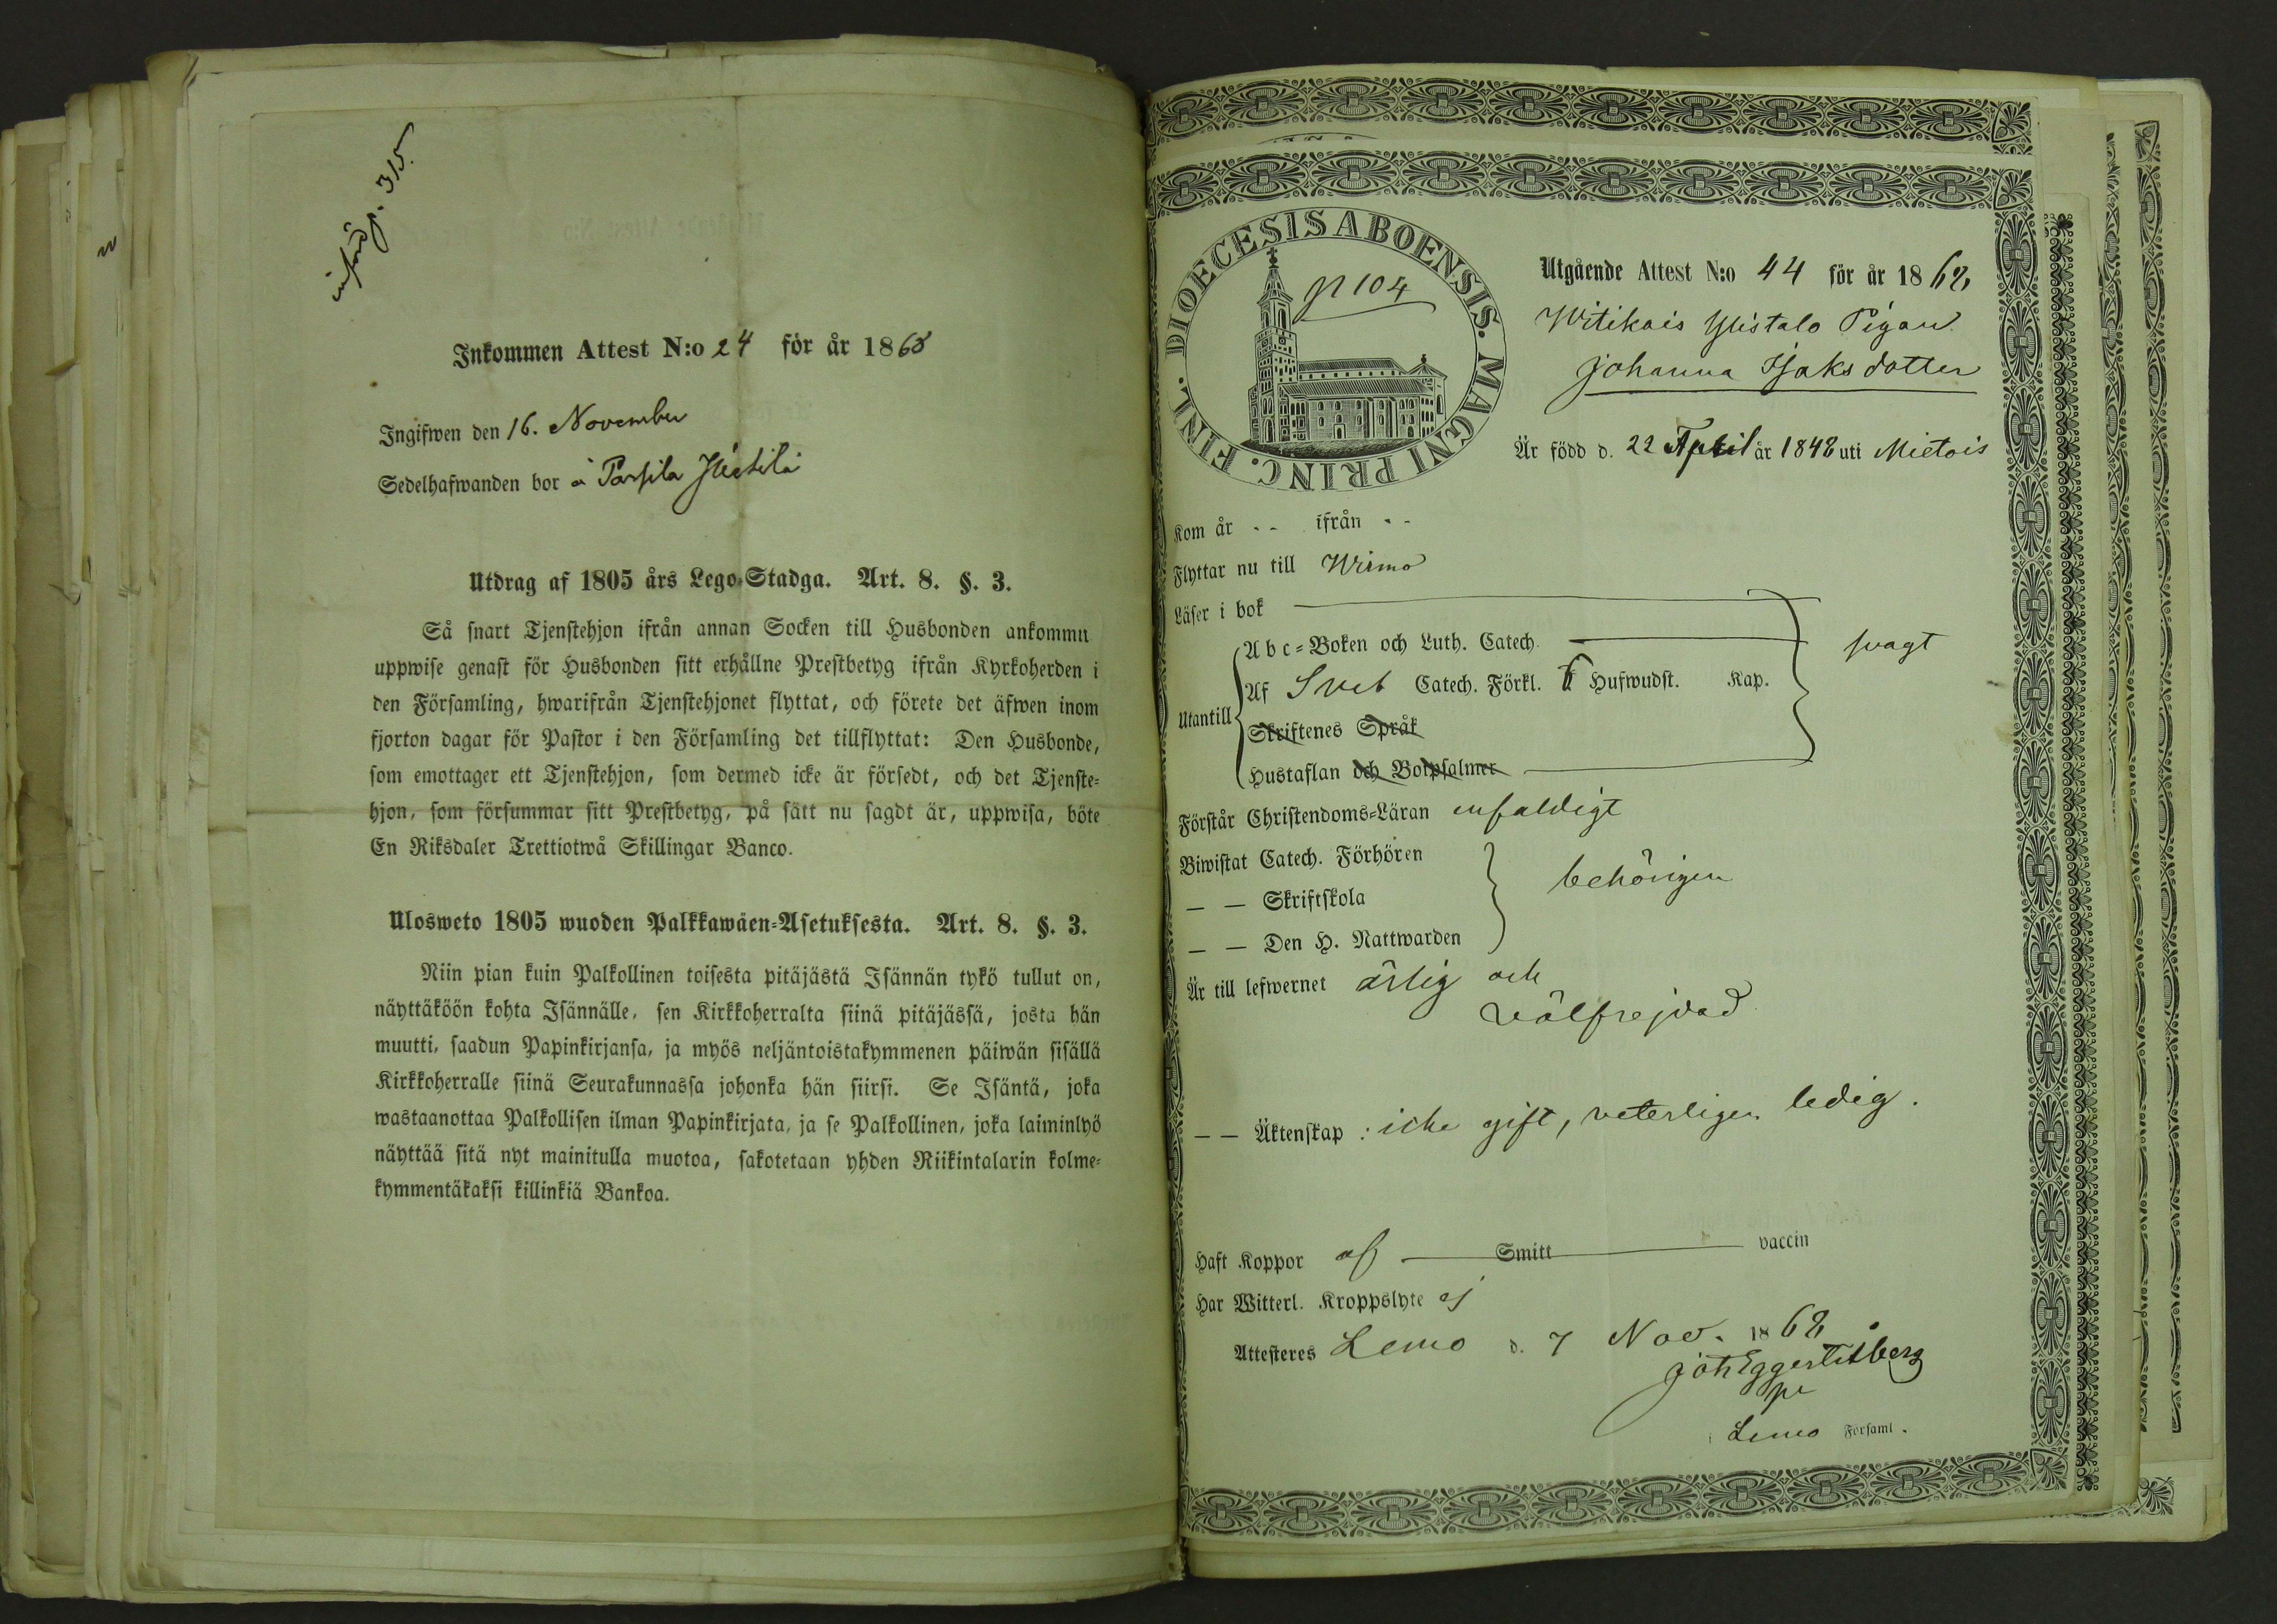 införd p. 315.
Inkommen Attest N:o 24 för år 1868
Ingifwen den 16. November
Sedelhafwanden bor å
Utdrag af 1805 års Lego-Stadga. Art. 8. §. 3.
Så snart Tjenstehjon ifrån annan Socken till Husbonden ankommit
uppwise genast för Husbonden sitt erhållne Prestbetyg ifrån Kyrkoherden i
den Församling, hwarifrån Tjenstehjonet flyttat, och förete det äfwen inom
fjorton dagar för Pastor i den Församling det tillflyttat: Den Husbonde,
som emottager ett Tjenstehjon, som dermed icke är försedt, och det Tjenste-
hjon, som försummar sitt Prestbetyg, på sätt nu sagdt är, uppwisa, böte
En Riksdaler Trettiotwå Skillingar Banco.
Ulosweto 1805 wuoden Palkkawäen-Asetuksesta. Art. 8. §. 3.
Niin pian kuin Palkollinen toisesta pitäjästä Isännän tykö tullut on,
näyttäköön kohta Isännälle, sen Kirkkoherralta siinä pitäjässä, josta hän
muutti, saadun Papinkirjansa, ja myös neljäntoistakymmenen päiwän sisällä
Kirkkoherralle siinä Seurakunnassa johonka hän siirsi. Se Isäntä, joka
wastaanottaa Palkollisen ilman Papinkirjata, ja se Palkollinen, joka laiminlyö
näyttää sitä nyt mainitulla muotoa, sakotetaan yhden Riikintalarin kolme-
kymmentäkaksi killinkiä Bankoa.
DIOECESIS ABOENSIS. MAGNI PRINC. FINL.
p 104
Utgående Attest N:o 44 för år 1868
Witikais Ylistalo Pigan
Johanna Isaksdotter
Är född d. 22 April år 1848 uti Mietois
Kom år - - ifrån - -
Flyttar nu till Wirmo
Läser i bok
Abc-Boken och Luth. Catech.
Af Sveb Catech. Förkl. 6 Hufwudst. Kap.
svagt
Utantill
Skriftenes Språk
Hustaflan och Botpsalmer
Förstår Christendoms-Läran enfaldigt
Biwistat Catech. Förhören
— — Skriftskola
behörigen
— — Den H. Nattwarden
Är till lefwernet ärlig och
välfrejdad
— — Äktenskap: icke gift, veterligen ledig.
Haft Koppor af Smitt vaccin
Har Witterl. Kroppslyte ej
Attesteres Lemo d. 7 Nov. 1868
Lemo Församl.